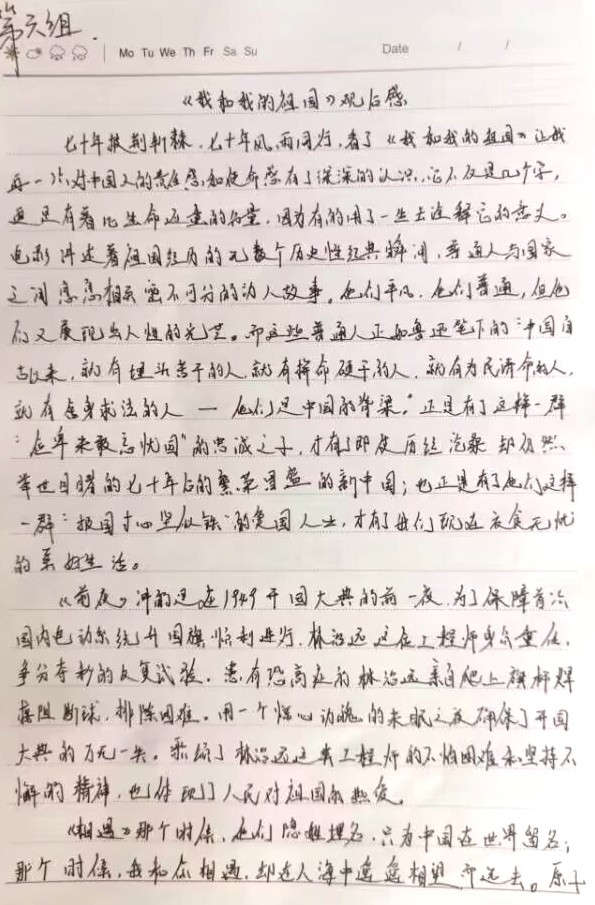 第六组
Mo Tu We Th Fr Sa Su Date / /
《我和我的祖国》观后感
七十年披荆斩棘，七十年风雨同行，看了《我和我的祖国》让我
再一次对中国人的责任感和使命感有了深深的认识，它不仅是几个字，
更是有着比生命还重的份量，因为有的用了一生去诠释它的意义。
电影讲述着祖国经历的无数个历史性经典瞬间，普通人与国家
之间息息相关密不可分的动人故事。他们平凡，他们普通，但他
们又展现出人性的光芒。而这些普通人正如鲁迅笔下的：“中国自
古以来，就有埋头苦干的人，就有拼命硬干的人，就有为民请命的人，
就有舍身求法的人 — 他们是中国的脊梁。”正是有了这样一群
“位卑未敢忘忧国”的忠诚之子，才有了即使历经沧桑却仍然
举世目睹的七十年后的繁荣昌盛的新中国；也正是有了他们这样
一群“报国寸心坚似铁”的爱国人士，才有了我们现在衣食无忧
的美好生活。
《前夜》讲的是在1949开国大典的前一夜，为了保障首次
国内电动系统升国旗顺利进行，林治远这位工程师身负重任，
争分夺秒的反复试验。患有恐高症的林治远亲自爬上旗杆焊
接阻断球，排除困难。用一个惊心动魄的未眠之夜确保了开国
大典的万无一失。歌颂了林治远这类工程师的不怕困难和坚持不
懈的精神，也体现了人民对祖国的热爱。
《相遇》那个时候，他们隐姓埋名，只为中国在世界留名；
那个时候，我和你相遇，却在人海中遥遥相望而远去。原子